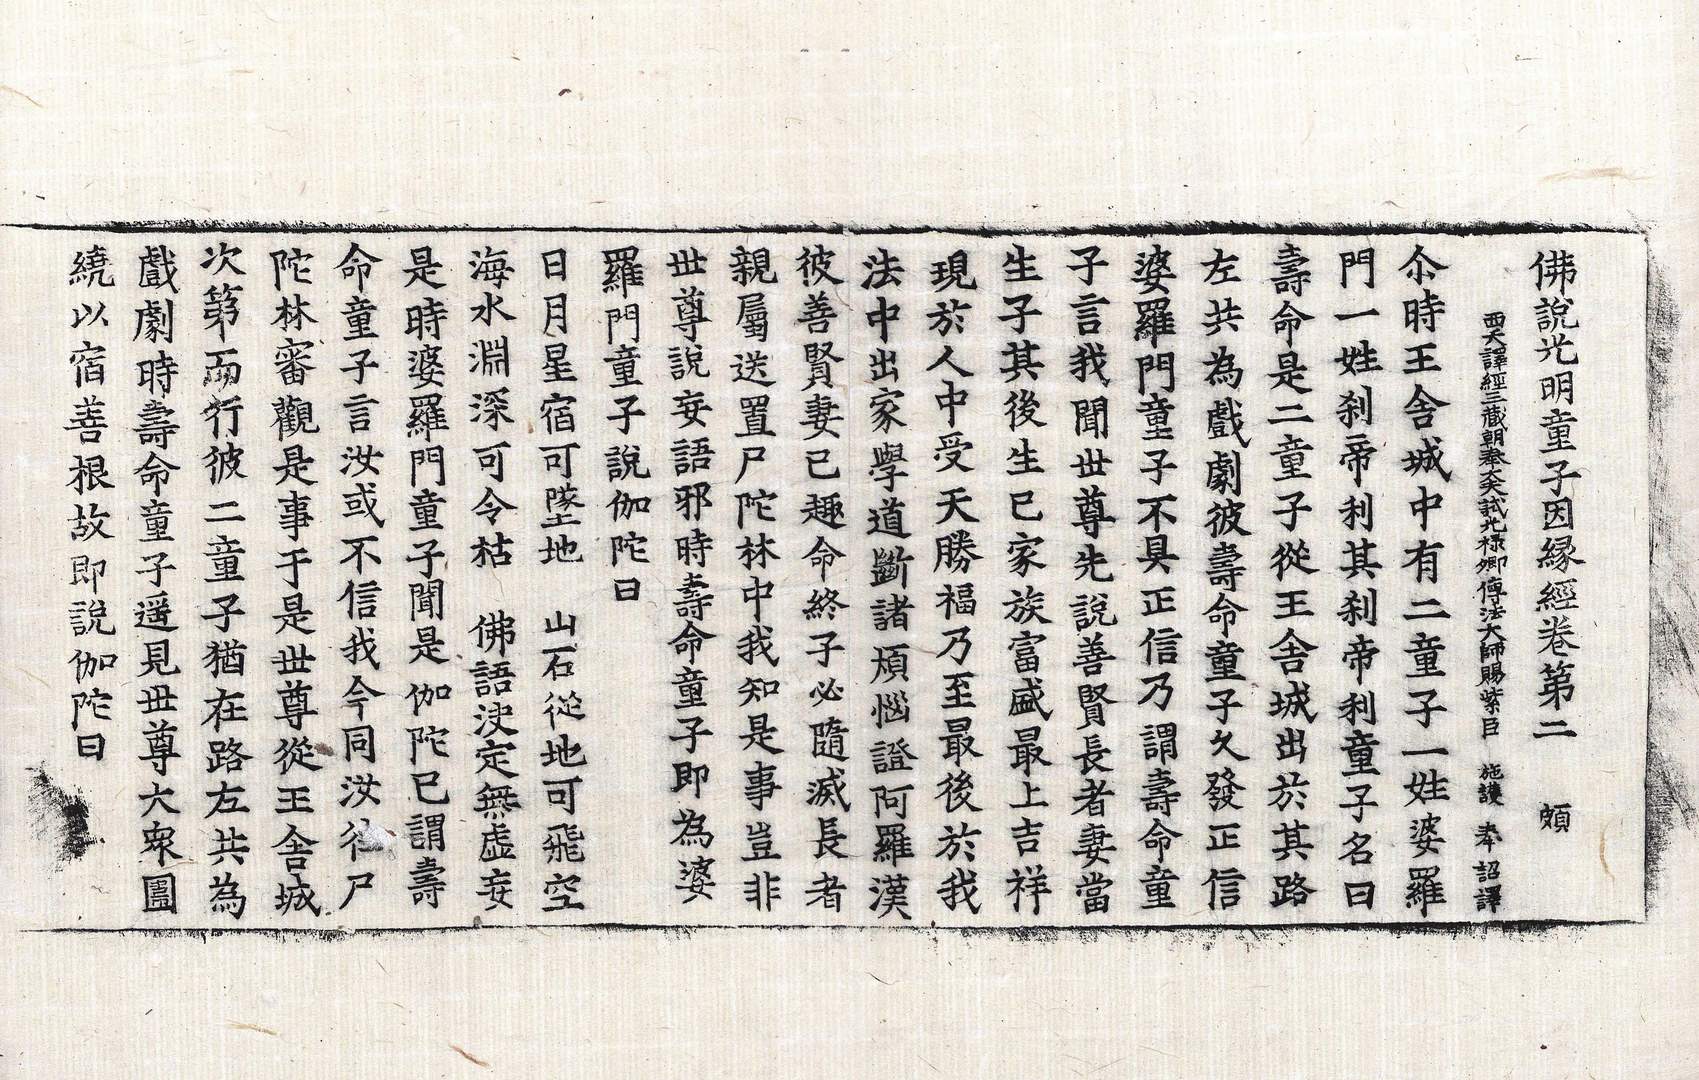 佛說光明童子因緣經卷第二　頗
西天譯經三藏朝奉大夫試光祿卿傳法大師賜紫臣　施護　奉　詔譯
尒時王舍城中有二童子一姓婆羅
門一姓刹帝利其刹帝利童子名曰
壽命是二童子從王舍城出於其路
左共為戲劇彼壽命童子久發正信
婆羅門童子不具正信乃謂壽命童
子言我聞世尊先說善賢長者妻當
生子其後生已家族富盛最上吉祥
現於人中受天勝福乃至最後於我
法中出家學道斷諸煩惱證阿羅漢
彼善賢妻已趣命終子必隨滅長者
親屬送置尸陀林中我知是事豈非
世尊說妄語邪時壽命童子即為婆
羅門童子說伽陀曰
日月星宿可墜地　山石從地可飛空
海水淵深可令枯　佛語決定無虛妄
是時婆羅門童子聞是伽陀已謂壽
命童子言汝或不信我今同汝往尸
陀林審觀是事于是世尊從王舍城
次第而行彼二童子猶在路左共為
戲劇時壽命童子遥見世尊大衆圍
繞以宿善根故即說伽陀曰